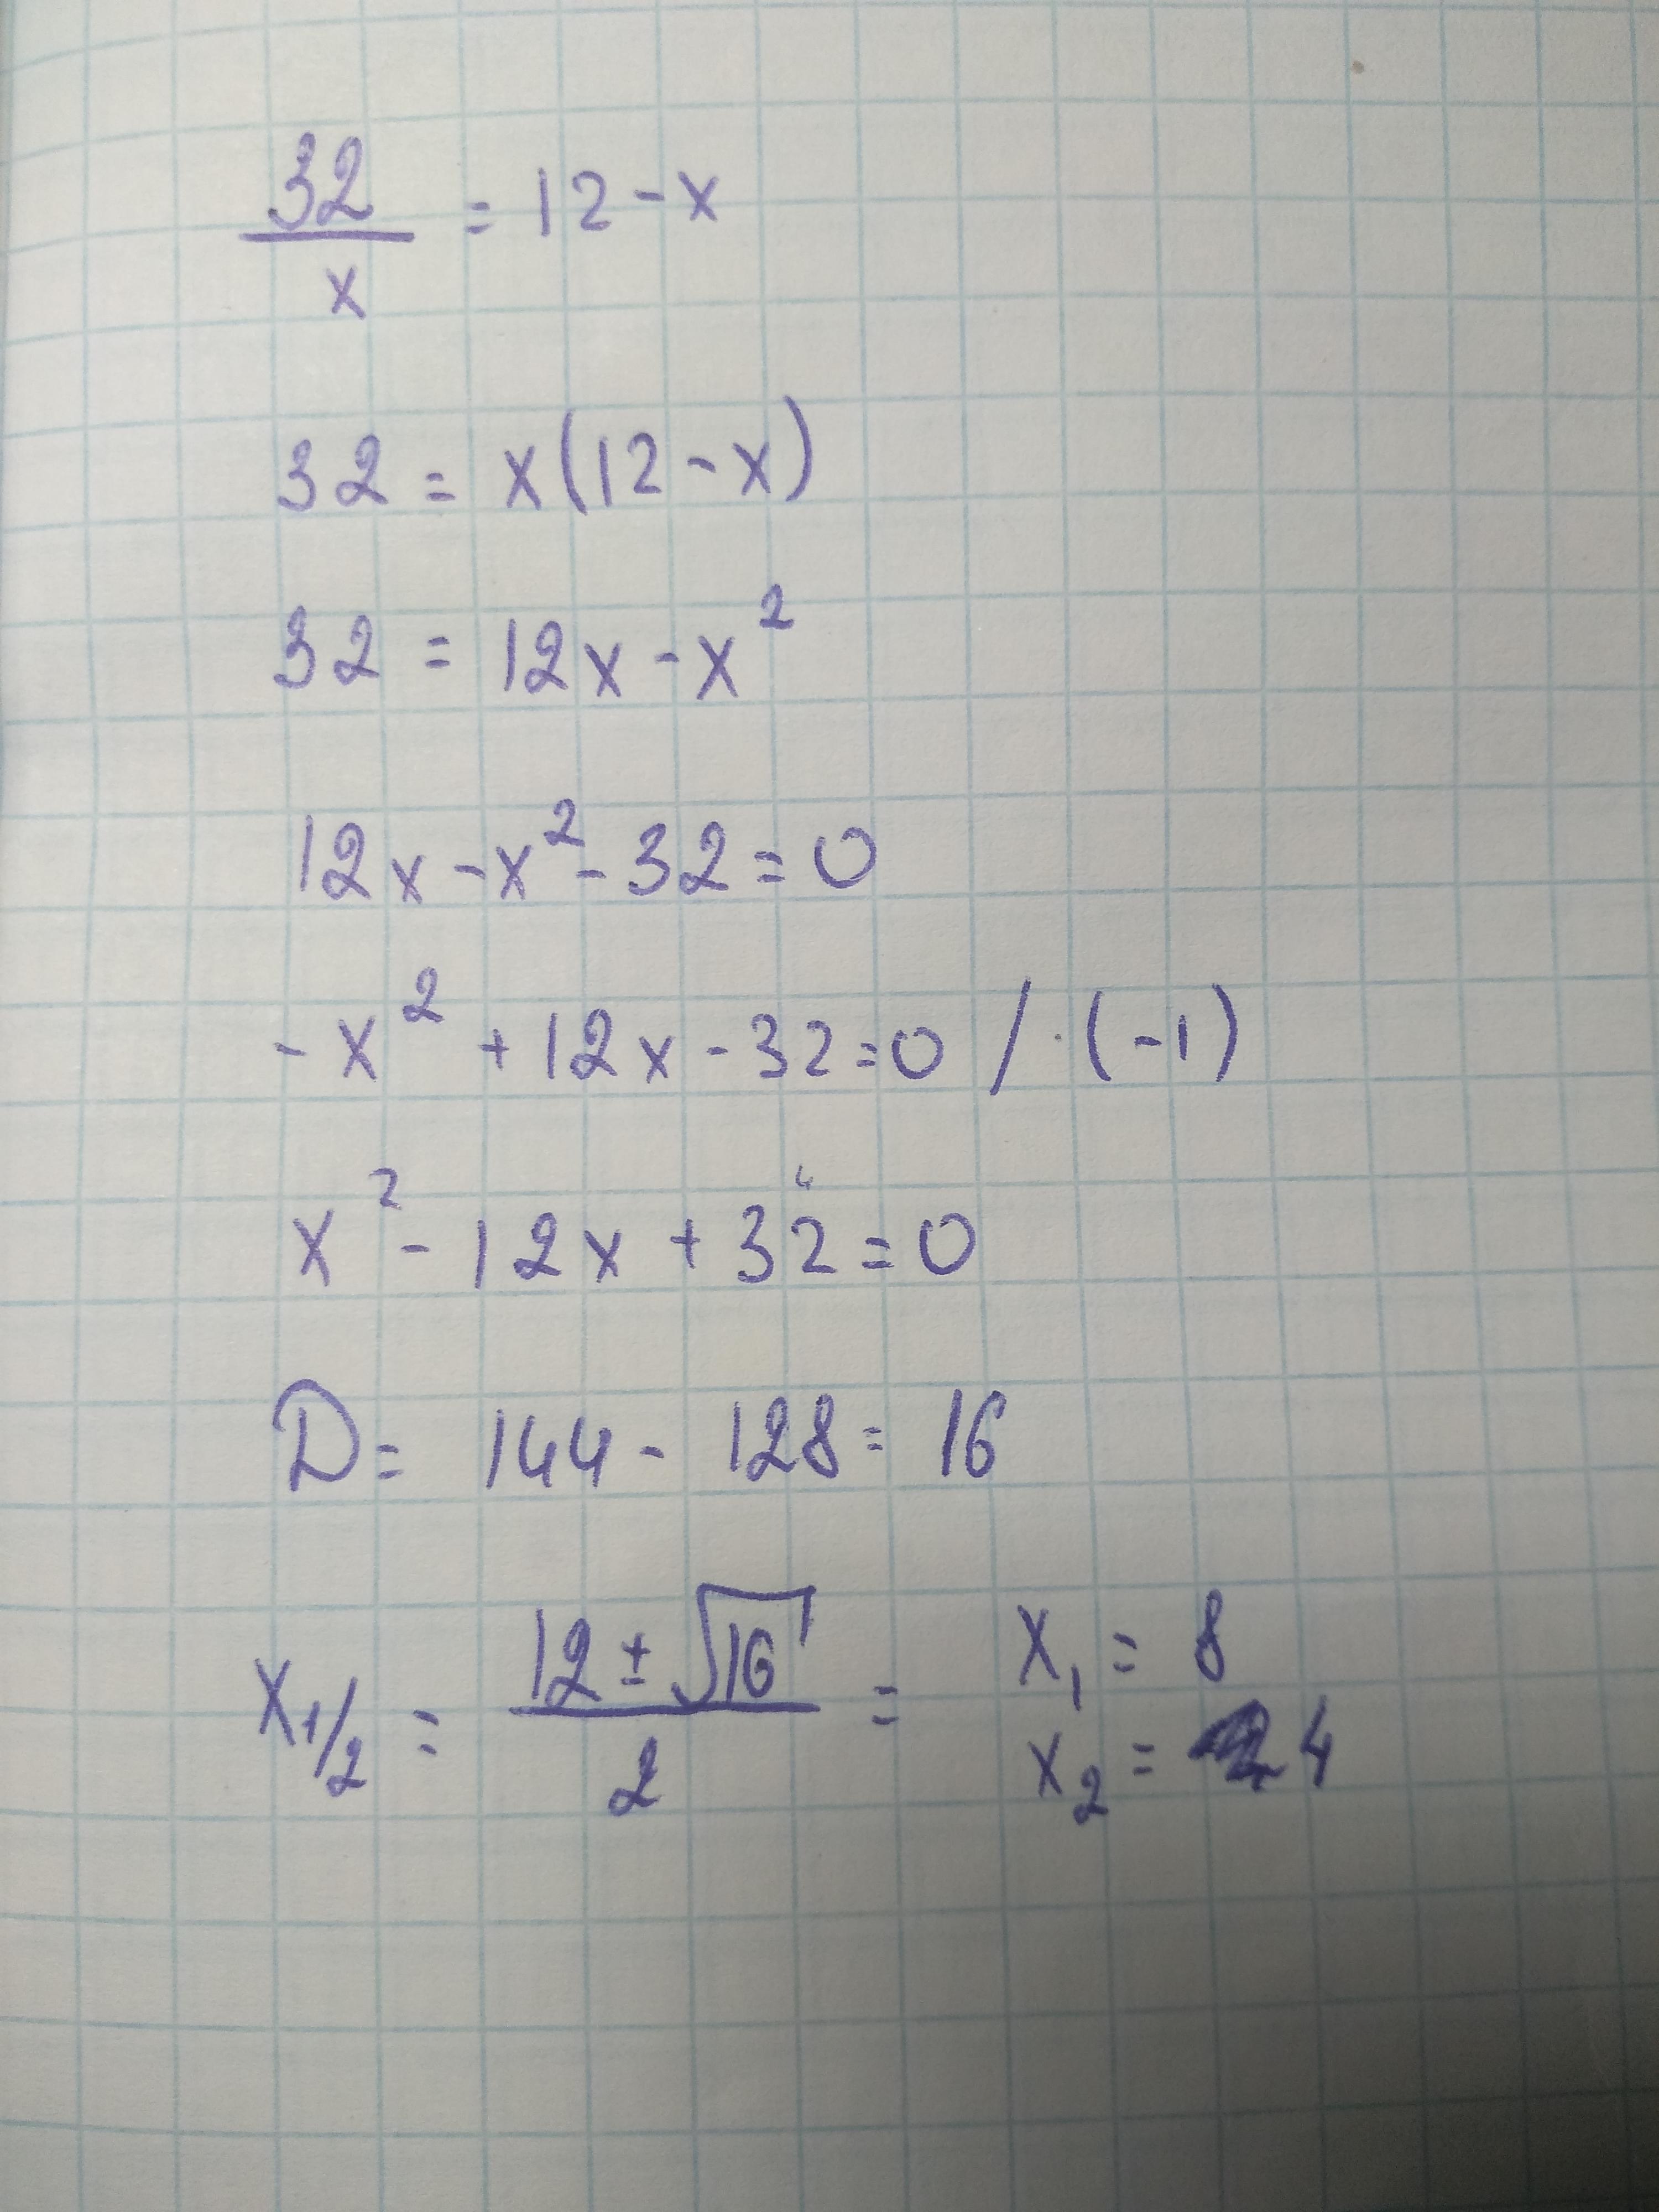 32/x = 12 - x
32 = x(12 - x)
32 = 12x - x²
12x - x² - 32 = 0
-x² + 12x - 32 = 0 / · (-1)
x² - 12x + 32 = 0
D = 144 - 128 = 16
x1/2 = (12 ± √16)/2 = x₁ = 8
x₂ = 4